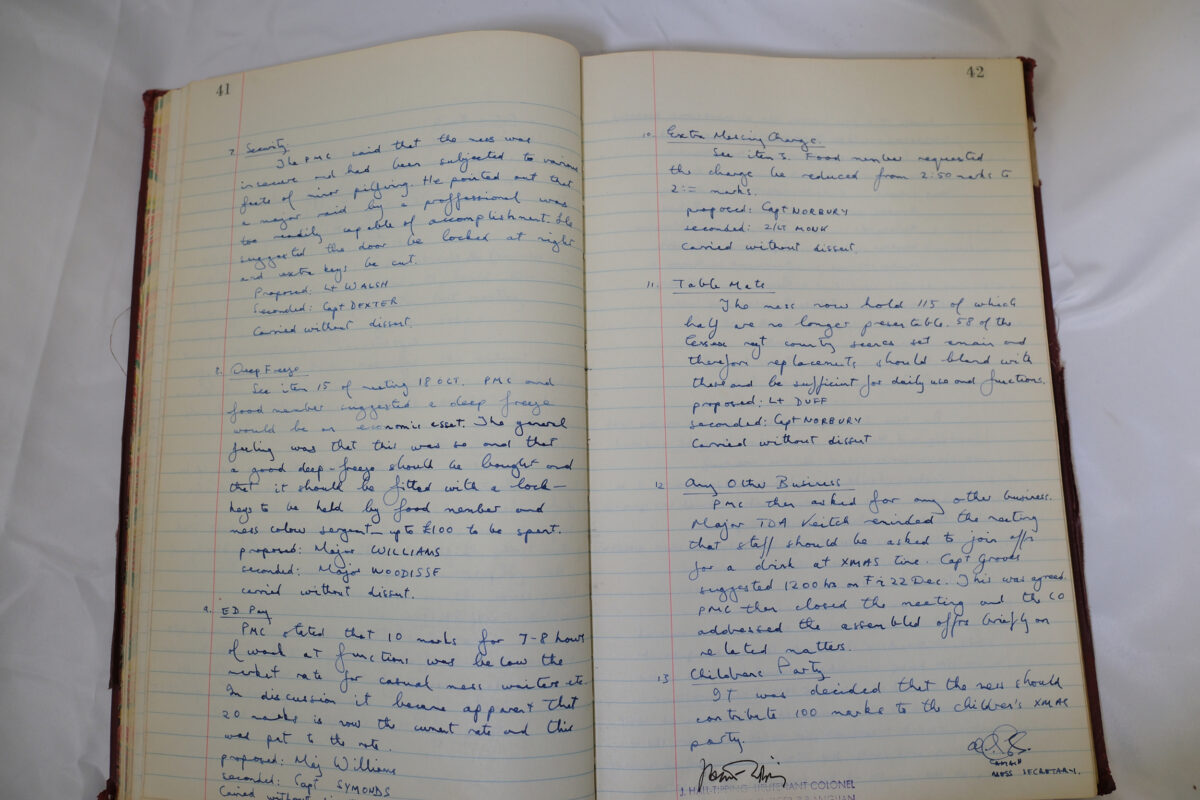 41
7. Security.
The PMC said that the mess was
insecure and had been subjected to various
feats of minor pilfering. He pointed out that
a major raid by a proffessional was
too readily capable of accomplishment. He
suggested the door be locked at night
and extra keys be cut.
Proposed: Lt WALSH
Seconded: Capt DEXTER
Carried without dissent.
8. Deep Freeze
See item 15 of meeting 18 OCT. PMC and
food member suggested a deep freeze
would be an economic asset. The general
feeling was that this was so and that
a good deep-freeze should be bought and
that it should be fitted with a lock —
keys to be held by food member and
mess colour sergant — up to £100 to be spent.
proposed: Major WILLIAMS
seconded: Major WOODISSE
carried without dissent.
9. ED Pay
PMC stated that 10 marks for 7-8 hours
of work at functions was below the
market rate for casual mess waiters etc
In discussion it became apparent that
20 marks is now the current rate and this
was put to the vote.
proposed: Maj Williams
seconded: Capt SYMONDS
Carried without
42
10. Extra Messing Charge.
See item 3. Food member requested
the charge be reduced from 2:50 marks to
2:= marks.
proposed: Capt NORBURY
seconded: 2/LT MONK
carried without dissent.
11. Table Mats
The mess now hold 115 of which
half are no longer presentable. 58 of the
regt county scenes set remain and
therefore replacements should blend with
these and be sufficient for daily use and functions.
proposed: Lt DUFF
seconded: Capt NORBURY
Carried without dissent
12 Any Other Business
PMC then asked for any other business.
Major TDA Veitch reminded the meeting
that staff should be asked to join offrs
for a drink at XMAS time. Capt Groves
suggested 1200 hrs on Fri 22 Dec. This was agreed.
PMC then closed the meeting and the CO
addressed the assembled offrs briefly on
related matters.
13 Childrens Party
IT was decided that the mess should
contribute 100 marks to the children's XMAS
party.
MESS SECRETARY.
J. HALL-TIPPING LIEUTENANT COLONEL